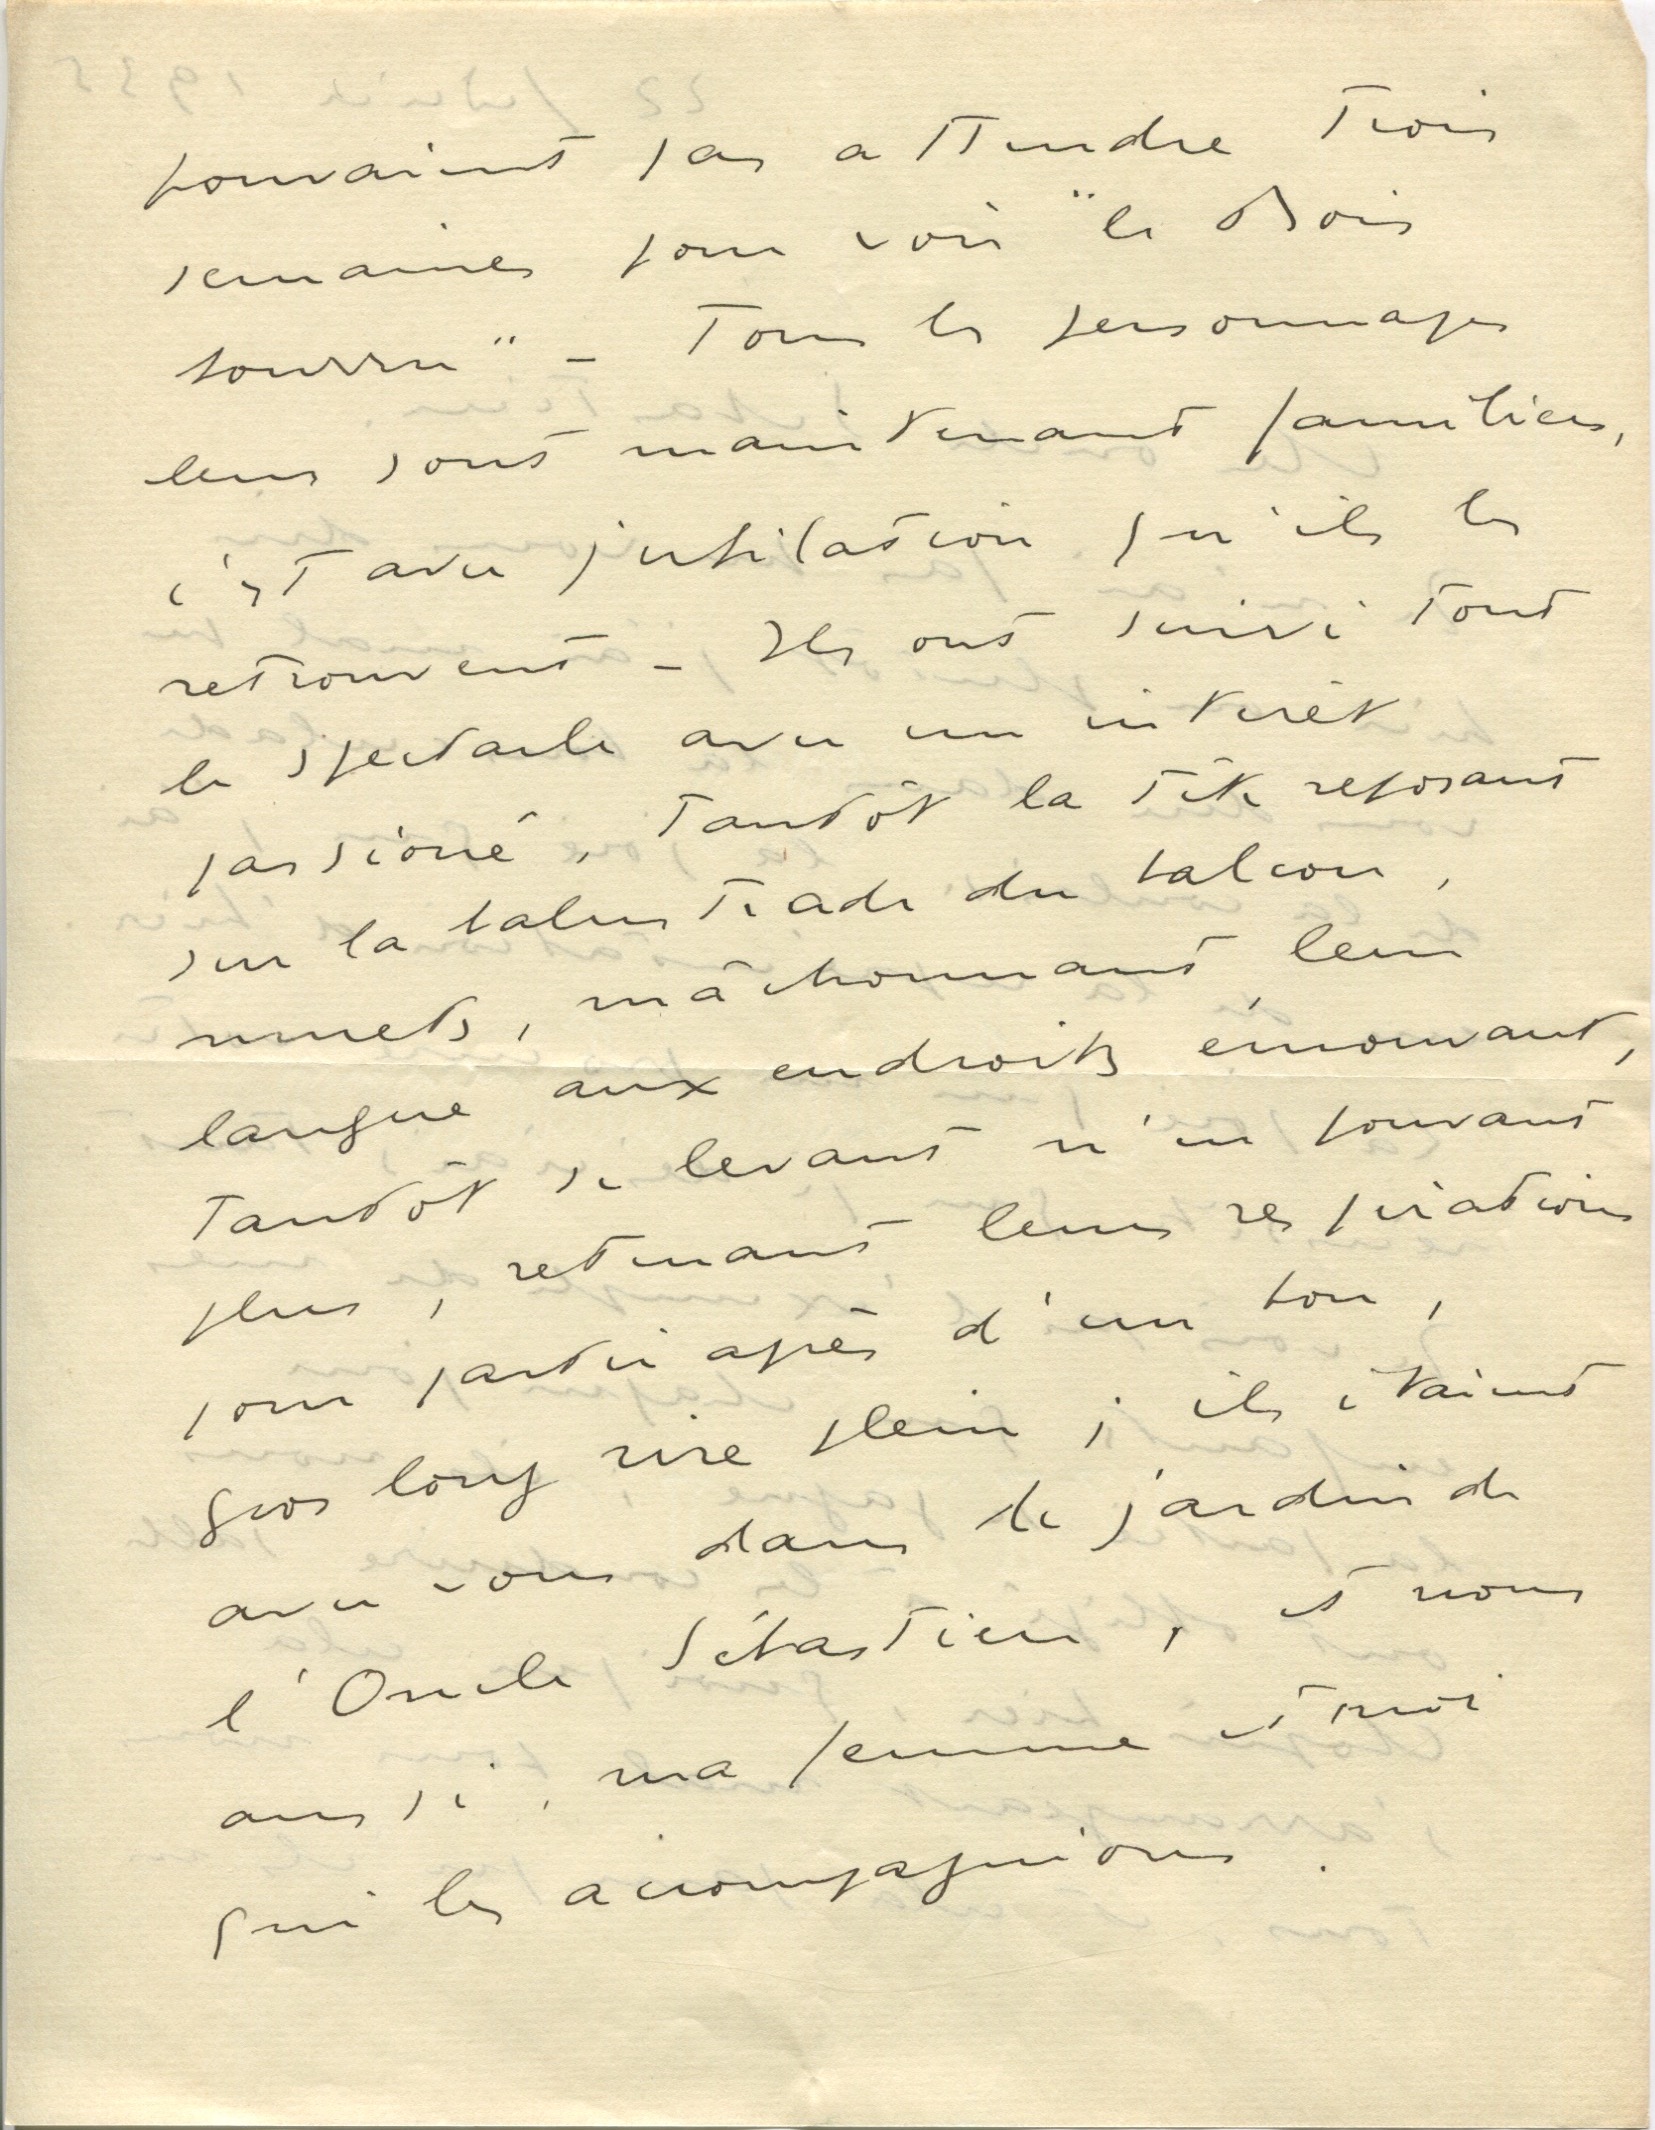 pouvaient pas attendre trois
semaines pour voir "le Bois
bourru" - Tous les personnages
leurs sont maintenant familiers,
c'est avec jubilation qu'ils les
retrouvent - Ils ont suivi tout
le spectacle avec un intérêt
passioné, tantôt la tête reposant
sur la balustrade du balcon,
muets, mâchonnant leur
langue aux endroits émouvants,
tantôt se levant n'en pouvant
plus, retenant leurs respirations
pour partir après d'un bon,
gros long rire plein ; ils étaient
avec vous dans le jardin de
l'Oncle Sébastien, et nous
aussi, ma femme et moi
qui les accompagnions.